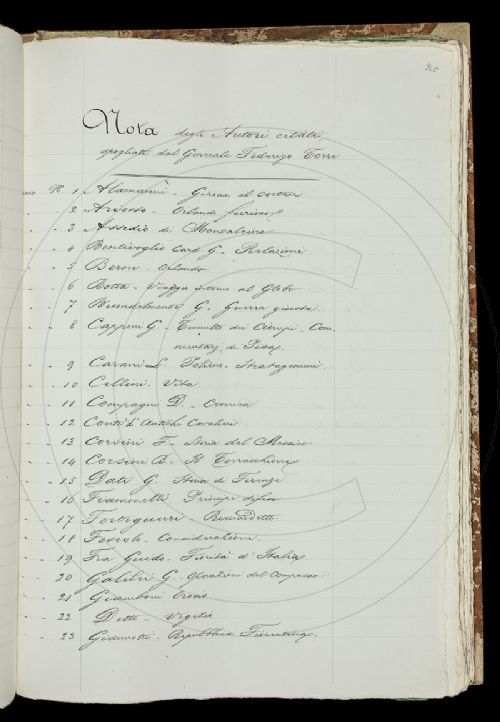 Nota degli Autori citati
spogliati dal Generale Federigo Torre
N. 1 Alamanni - Girone il cortese
2 Ariosto - Orlando furioso
3 Assedio di Montalcino
4 Bentivoglio Card. G. - Relazioni
5 Berni - Orlando
6 Botta - Viaggio intorno al Globo
7 G. Guerra
8 Capponi G. - Tumulto dei Ciompi - Com
mentarj di Pisa
9 Carani L. Polieno - Stratagemmi
10 Cellini - Vita
11 Compagni D. - Cronica
12 Conti d'Antichi Cavalieri
13 Corsini F. Storia del Messico
14 Corsini B. - Il Torracchione
15 Dati G. Storia di Firenze
16 Fiammelli Principe difeso
17 Forteguerri - Ricciardetto
18 - Considerazioni
19 Fra Guido - Fiorità d'Italia
20 Galilei G. - Operazioni del Compasso
21 Giamboni Orosio
22 Detto - Vegezio
23 Giannotti - Repubblica Fiorentina